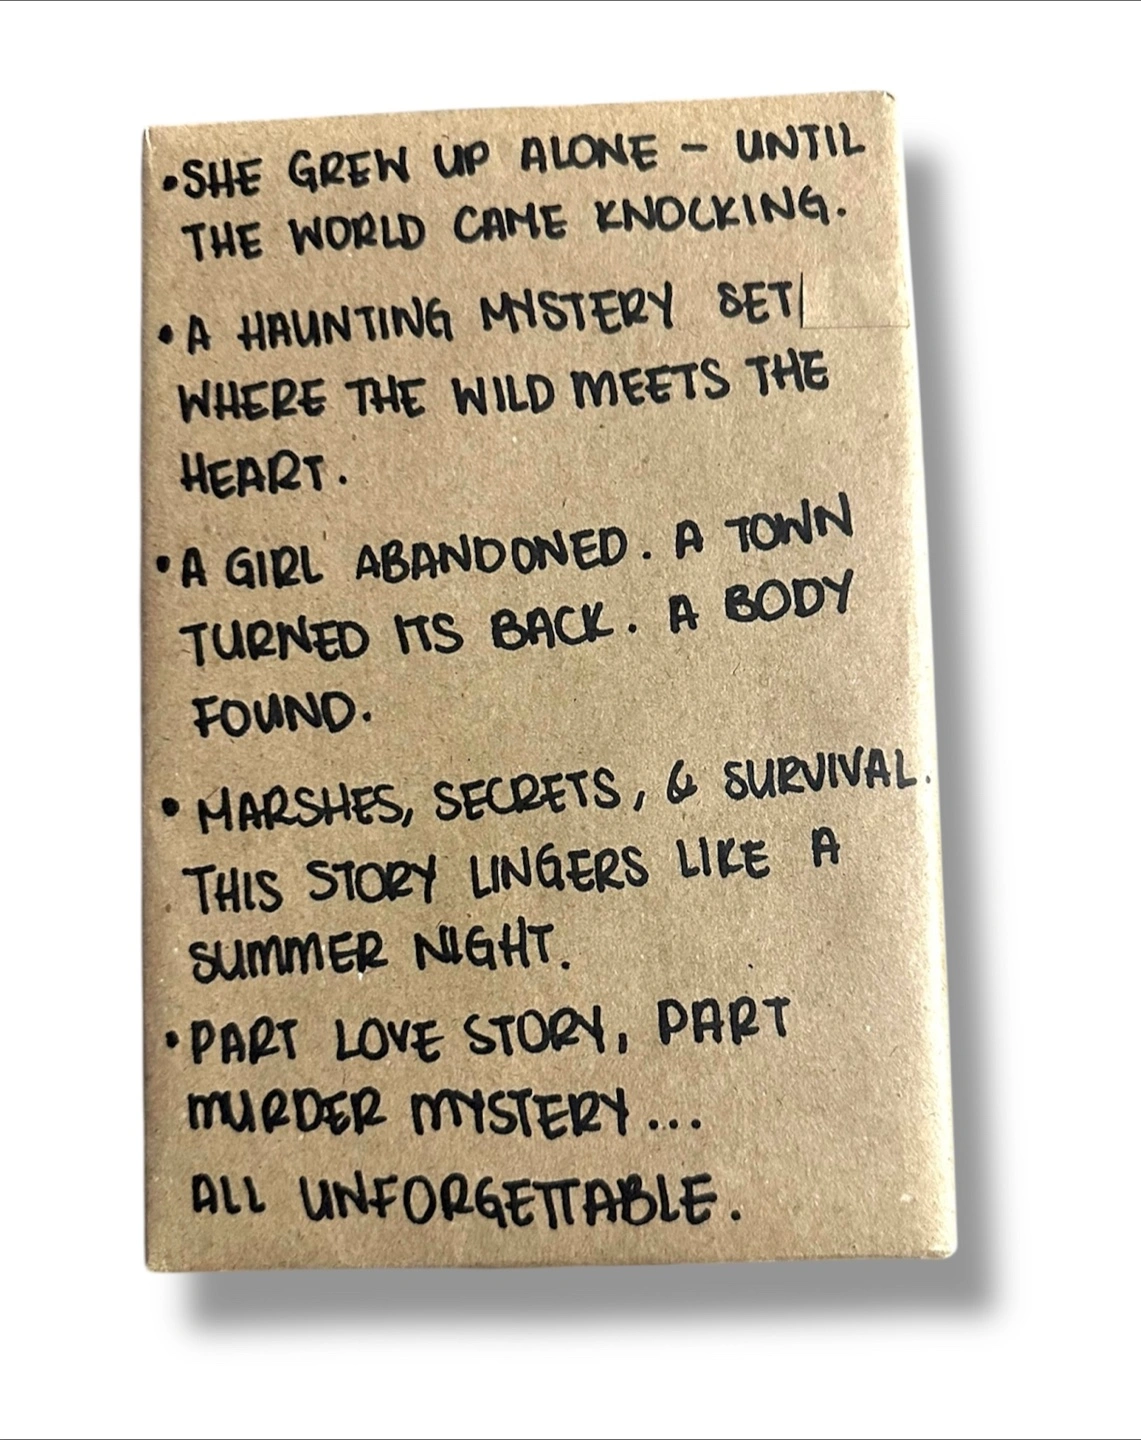 •SHE GREW UP ALONE – UNTIL
THE WORLD CAME KNOCKING.
•A HAUNTING MYSTERY SET
WHERE THE WILD MEETS THE
HEART.
•A GIRL ABANDONED. A TOWN
TURNED ITS BACK. A BODY
FOUND.
• MARSHES, SECRETS, & SURVIVAL.
THIS STORY LINGERS LIKE A
SUMMER NIGHT.
•PART LOVE STORY, PART
MURDER MYSTERY...
ALL UNFORGETTABLE.